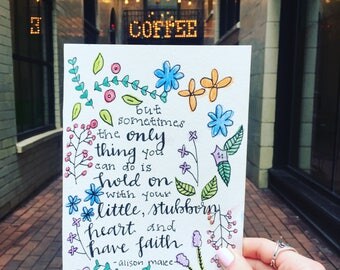 COFFEE
but
sometimes
the only
thing you
can do is
hold on
with your
little, stubborn
heart and
have faith
-alison malee